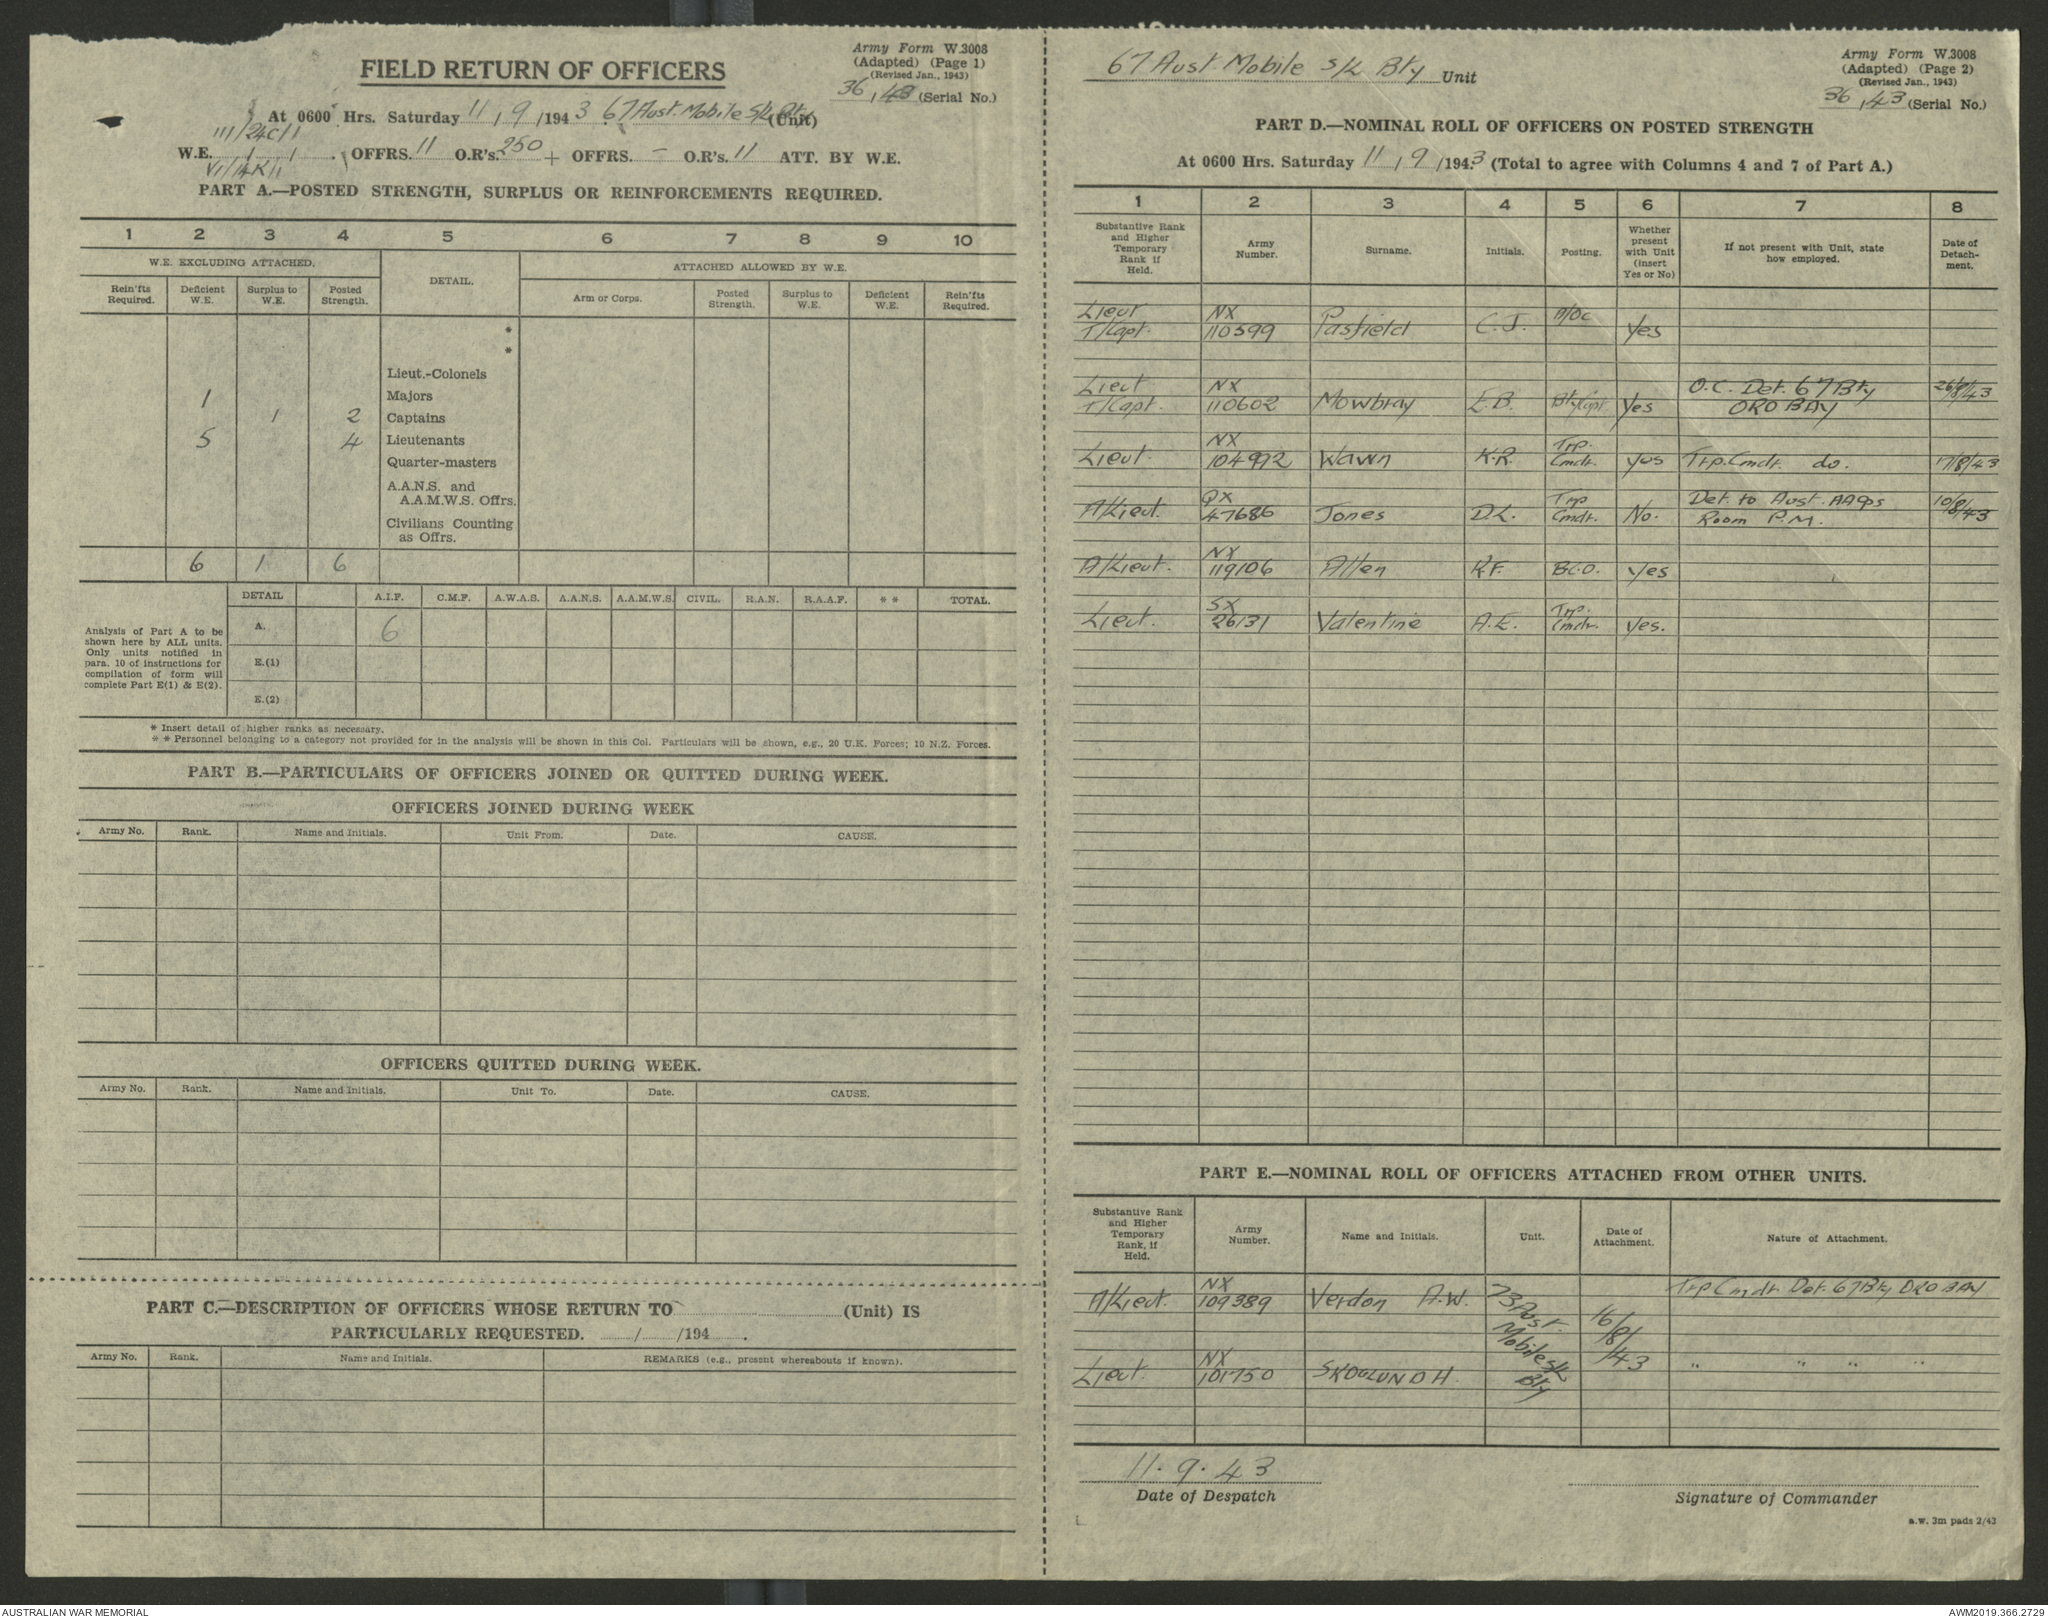 Army Form W.3008
(Adapted) (Page 1)
(Revised Jan., 1943)
36, 43 (Serial No.)
FIELD RETURN OF OFFICERS
At 0600 Hrs. Saturday 11, 9 /1943. 67 Aust. Mobile S/L Bty (Unit)
III/24C/1
W.E. / / . OFFRS. 11 O.R's. 250 + OFFRS. - O.R's. 11 ATT. BY W.E.
PART A.—POSTED STRENGTH, SURPLUS OR REINFORCEMENTS REQUIRED.
1 2 3 4 5 6 7 8 9 10
W.E. EXCLUDING ATTACHED. DETAIL. ATTACHED ALLOWED BY W.E.
Rein'fts Required. Deficient W.E. Surplus to W.E. Posted Strength. Arm or Corps. Posted Strength. Surplus to W.E. Deficient W.E. Rein'fts Required.
*
*
Lieut.-Colonels
1 Majors
1 2 Captains
5 4 Lieutenants
Quarter-masters
A.A.N.S. and
A.A.M.W.S. Offrs.
Civilians Counting
as Offrs.
6 1 6
DETAIL A.I.F. C.M.F. A.W.A.S. A.A.N.S. A.A.M.W.S. CIVIL. R.A.N. R.A.A.F. * * TOTAL.
Analysis of Part A to be
shown here by ALL units.
Only units notified in
para. 10 of instructions for
compilation of form will
complete Part E(1) & E(2).
A. 6
E.(1)
E.(2)
* Insert detail of higher ranks as necessary.
* * Personnel belonging to a category not provided for in the analysis will be shown in this Col. Particulars will be shown, e.g., 20 U.K. Forces; 10 N.Z. Forces.
PART B.—PARTICULARS OF OFFICERS JOINED OR QUITTED DURING WEEK.
OFFICERS JOINED DURING WEEK
Army No. Rank. Name and Initials. Unit From. Date. CAUSE.
OFFICERS QUITTED DURING WEEK.
Army No. Rank. Name and Initials. Unit To. Date. CAUSE.
PART C.—DESCRIPTION OF OFFICERS WHOSE RETURN TO (Unit) IS
PARTICULARLY REQUESTED. / /194 .
Army No. Rank. Name and Initials. REMARKS (e.g., present whereabouts if known).
67 Aust Mobile S/L Bty Unit
Army Form W.3008
(Adapted) (Page 2)
(Revised Jan., 1943)
36, 43 (Serial No.)
PART D.—NOMINAL ROLL OF OFFICERS ON POSTED STRENGTH
At 0600 Hrs. Saturday 11, 9 /1943 (Total to agree with Columns 4 and 7 of Part A.)
1 2 3 4 5 6 7 8
Substantive Rank and Higher Temporary Rank if Held. Army Number. Surname. Initials. Posting. Whether present with Unit (insert Yes or No) If not present with Unit, state how employed. Date of Detachment.
Lieut NX
T/Capt. 110599 Pasfield C.J. A/OC Yes
Lieut NX O.C. Det. 67 Bty 26/8/43
T/Capt. 110602 Mowbray E.B. Bty Capt Yes ORO BAY
NX Trp.
Lieut. 104992 Wawn K.R. Cmdr. yes Trp. Cmdr. do. 17/8/43
QX Trp Det. to Aust. AA Ops 10/8/43
A/Lieut. 47686 Jones D.L. Cmdr. No. Room P.M.
NX
A/Lieut. 119106 Allen K.F. B.C.O. Yes
SX Trp.
Lieut. 26131 Valentine A.E. Cmdr. Yes.
PART E.—NOMINAL ROLL OF OFFICERS ATTACHED FROM OTHER UNITS.
Substantive Rank and Higher Temporary Rank, if Held. Army Number. Name and Initials. Unit. Date of Attachment. Nature of Attachment.
NX Trp Cmdr. Det. 67 Bty ORO BAY
A/Lieut. 109389 Verdon A.W. 73 Aust. Mobile S/L Bty 16/8/43
NX " " " "
Lieut. 101750 SKOGLUND H.
11. 9. 43
Date of Despatch
Signature of Commander
a.w. 3m pads 2/43
AUSTRALIAN WAR MEMORIAL
AWM2019.366.2729